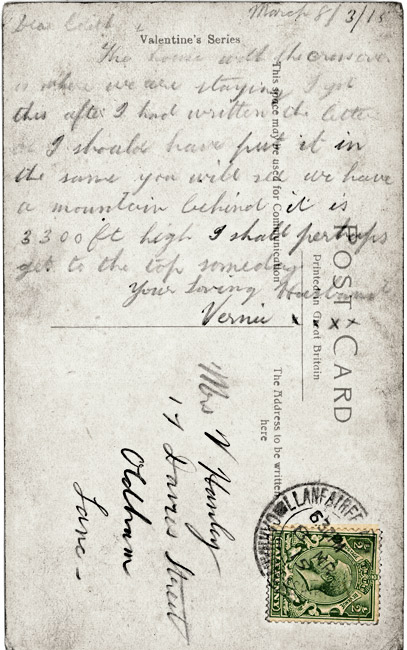 March 8/3/15
Dear Edith
Valentine's Series
The house with the cross over
is where we are staying I got
this after I had written the letter
or I should have put it in
the same you will see we have
a mountain behind it is
3300 ft high I shall perhaps
get to the top someday
Your Loving Husband
Vernie x x x
This space may be used for Communication
POST CARD
Printed in Great Britain
The Address to be written
here
Mrs V Hamley
17 Davies Street
Oldham
Lanc-
LLANFAIRFE
HALFPENNY